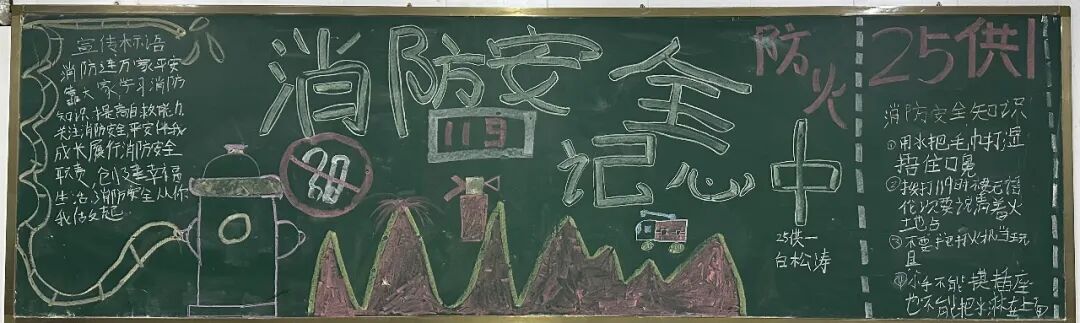 宣传标语
消防连万家平安
靠大家学习消防
知识提高自救能力
关注消防安全平安伴我
成长履行消防安全
职责
生活消防安全从你
我做起
消防安全
119
记心中
防火
25供一
白松涛
25供1
消防安全知识
①用水把毛巾打湿
捂住口鼻
②拨打119时
说清着火
③不要把打火机当玩
且
④小手不能摸插座
也不能把水淋在上面